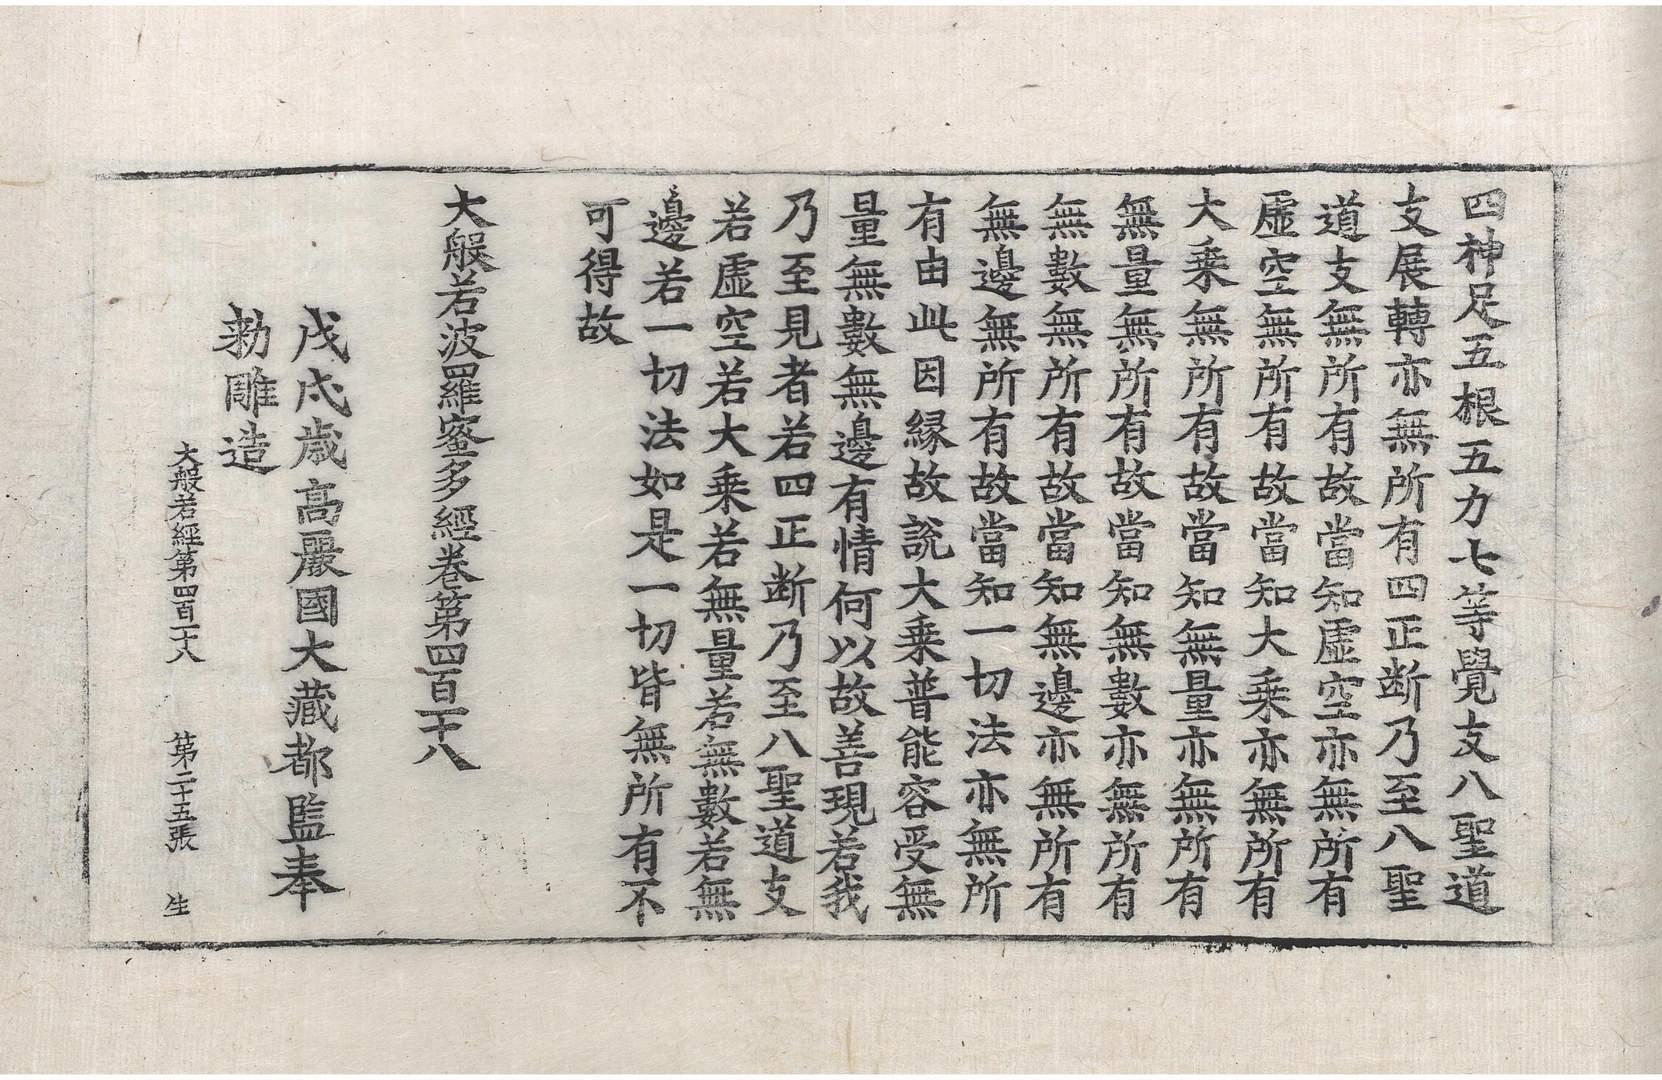 四神足五根五力七等覺支八聖道
支展轉亦無所有四正断乃至八聖
道支無所有故當知虛空亦無所有
虛空無所有故當知大乘亦無所有
大乘無所有故當知無量亦無所有
無量無所有故當知無數亦無所有
無數無所有故當知無邊亦無所有
無邊無所有故當知一切法亦無所
有由此因緣故說大乘普能容受無
量無數無邊有情何以故善現若我
乃至見者若四正断乃至八聖道支
若虛空若大乘若無量若無數若無
邊若一切法如是一切皆無所有不
可得故
大般若波羅蜜多經卷第四百一十八
戊戌歲高麗國大藏都監奉
勑雕造
大般若經第四百一十八 第二十五張 生